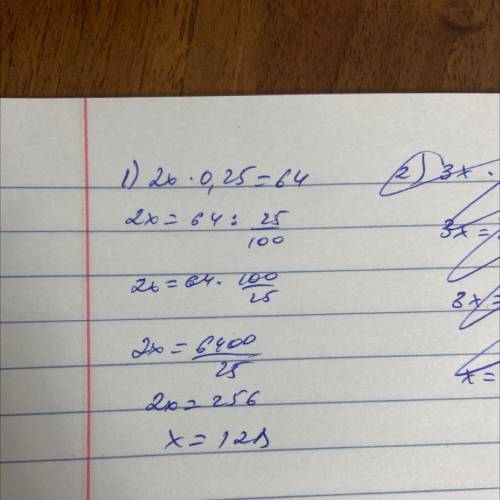 1) 2x · 0,25 = 64
2x = 64 : 25/100
2x = 64 · 100/25
2x = 6400/25
2x = 256
x = 128
2) 3x ·
3x =
3x =
x =